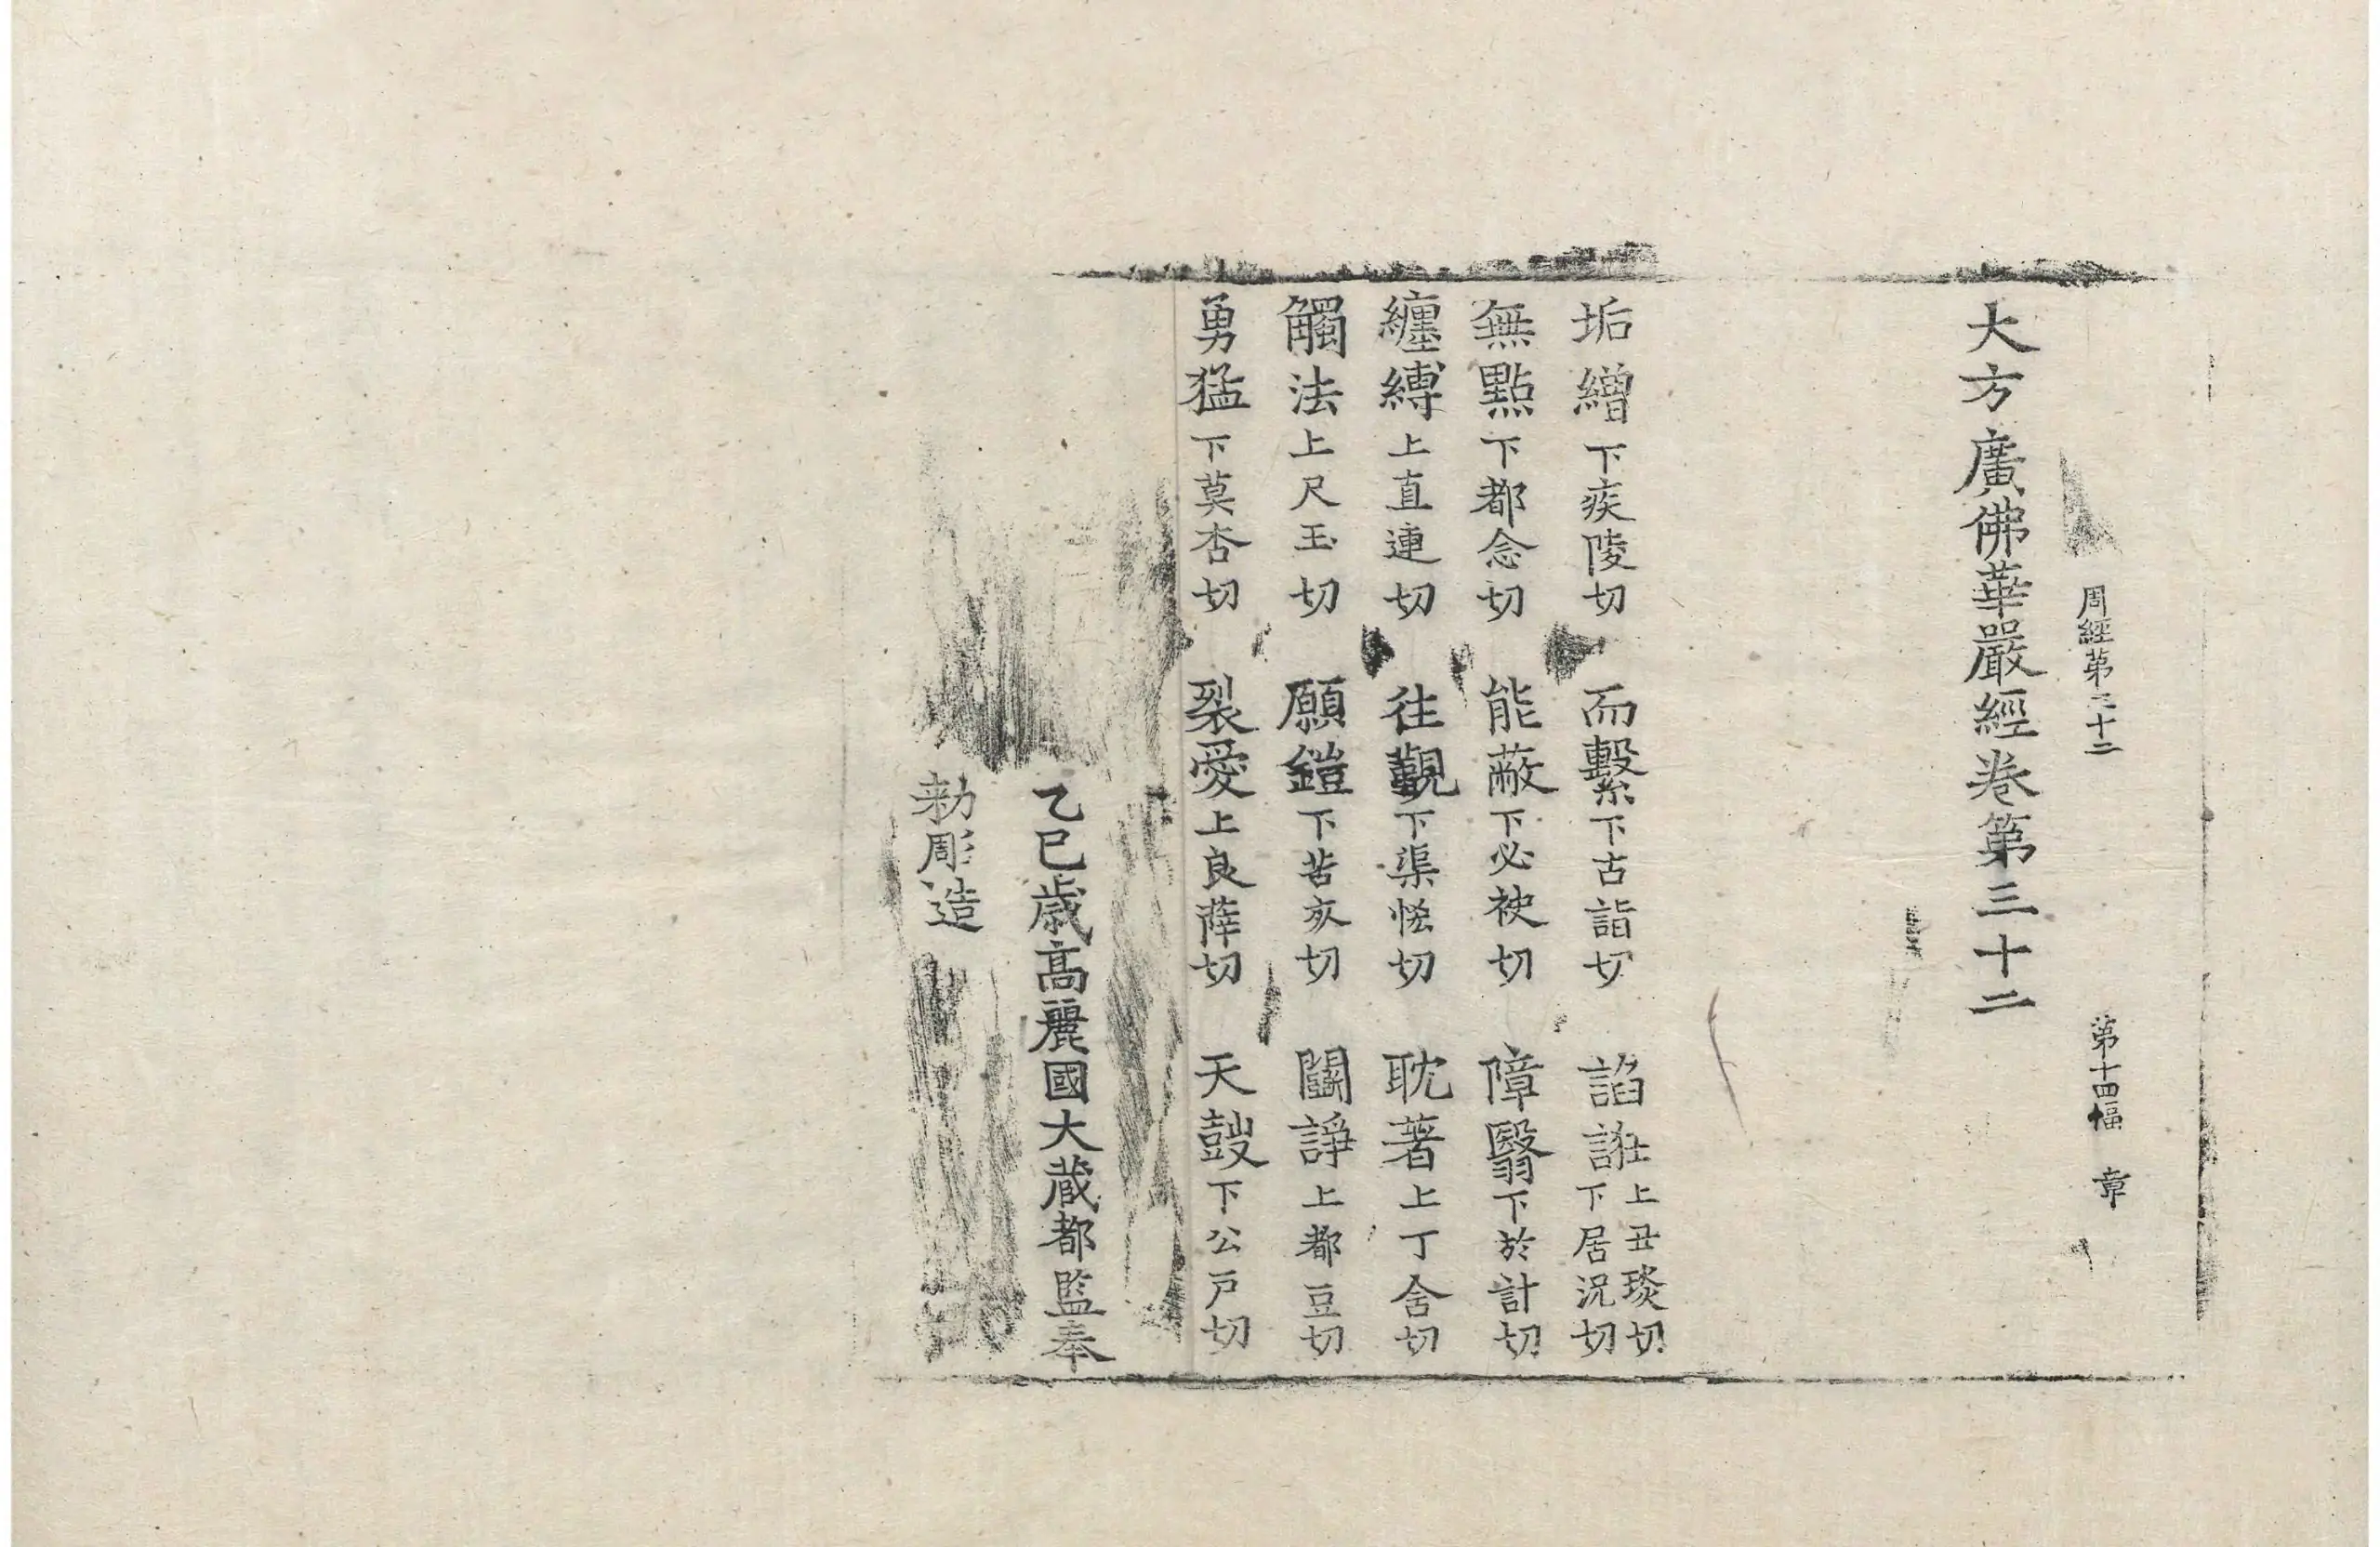 周經第三十二 第十四幅 章
大方廣佛華嚴經卷第三十二
垢繒下疾陵切 而繫下古詣切 諂誑上丑琰切下居況切
無點下都念切 能蔽下必袂切 障翳下於計切
纏縛上直連切 往觀下渠恡切 耽著上丁含切
觸法上尺玉切 願鎧下苦亥切 鬪諍上都豆切
勇猛下莫杏切 裂愛上良薛切 天鼓下公戶切
乙巳歲高麗國大藏都監奉
勅彫造